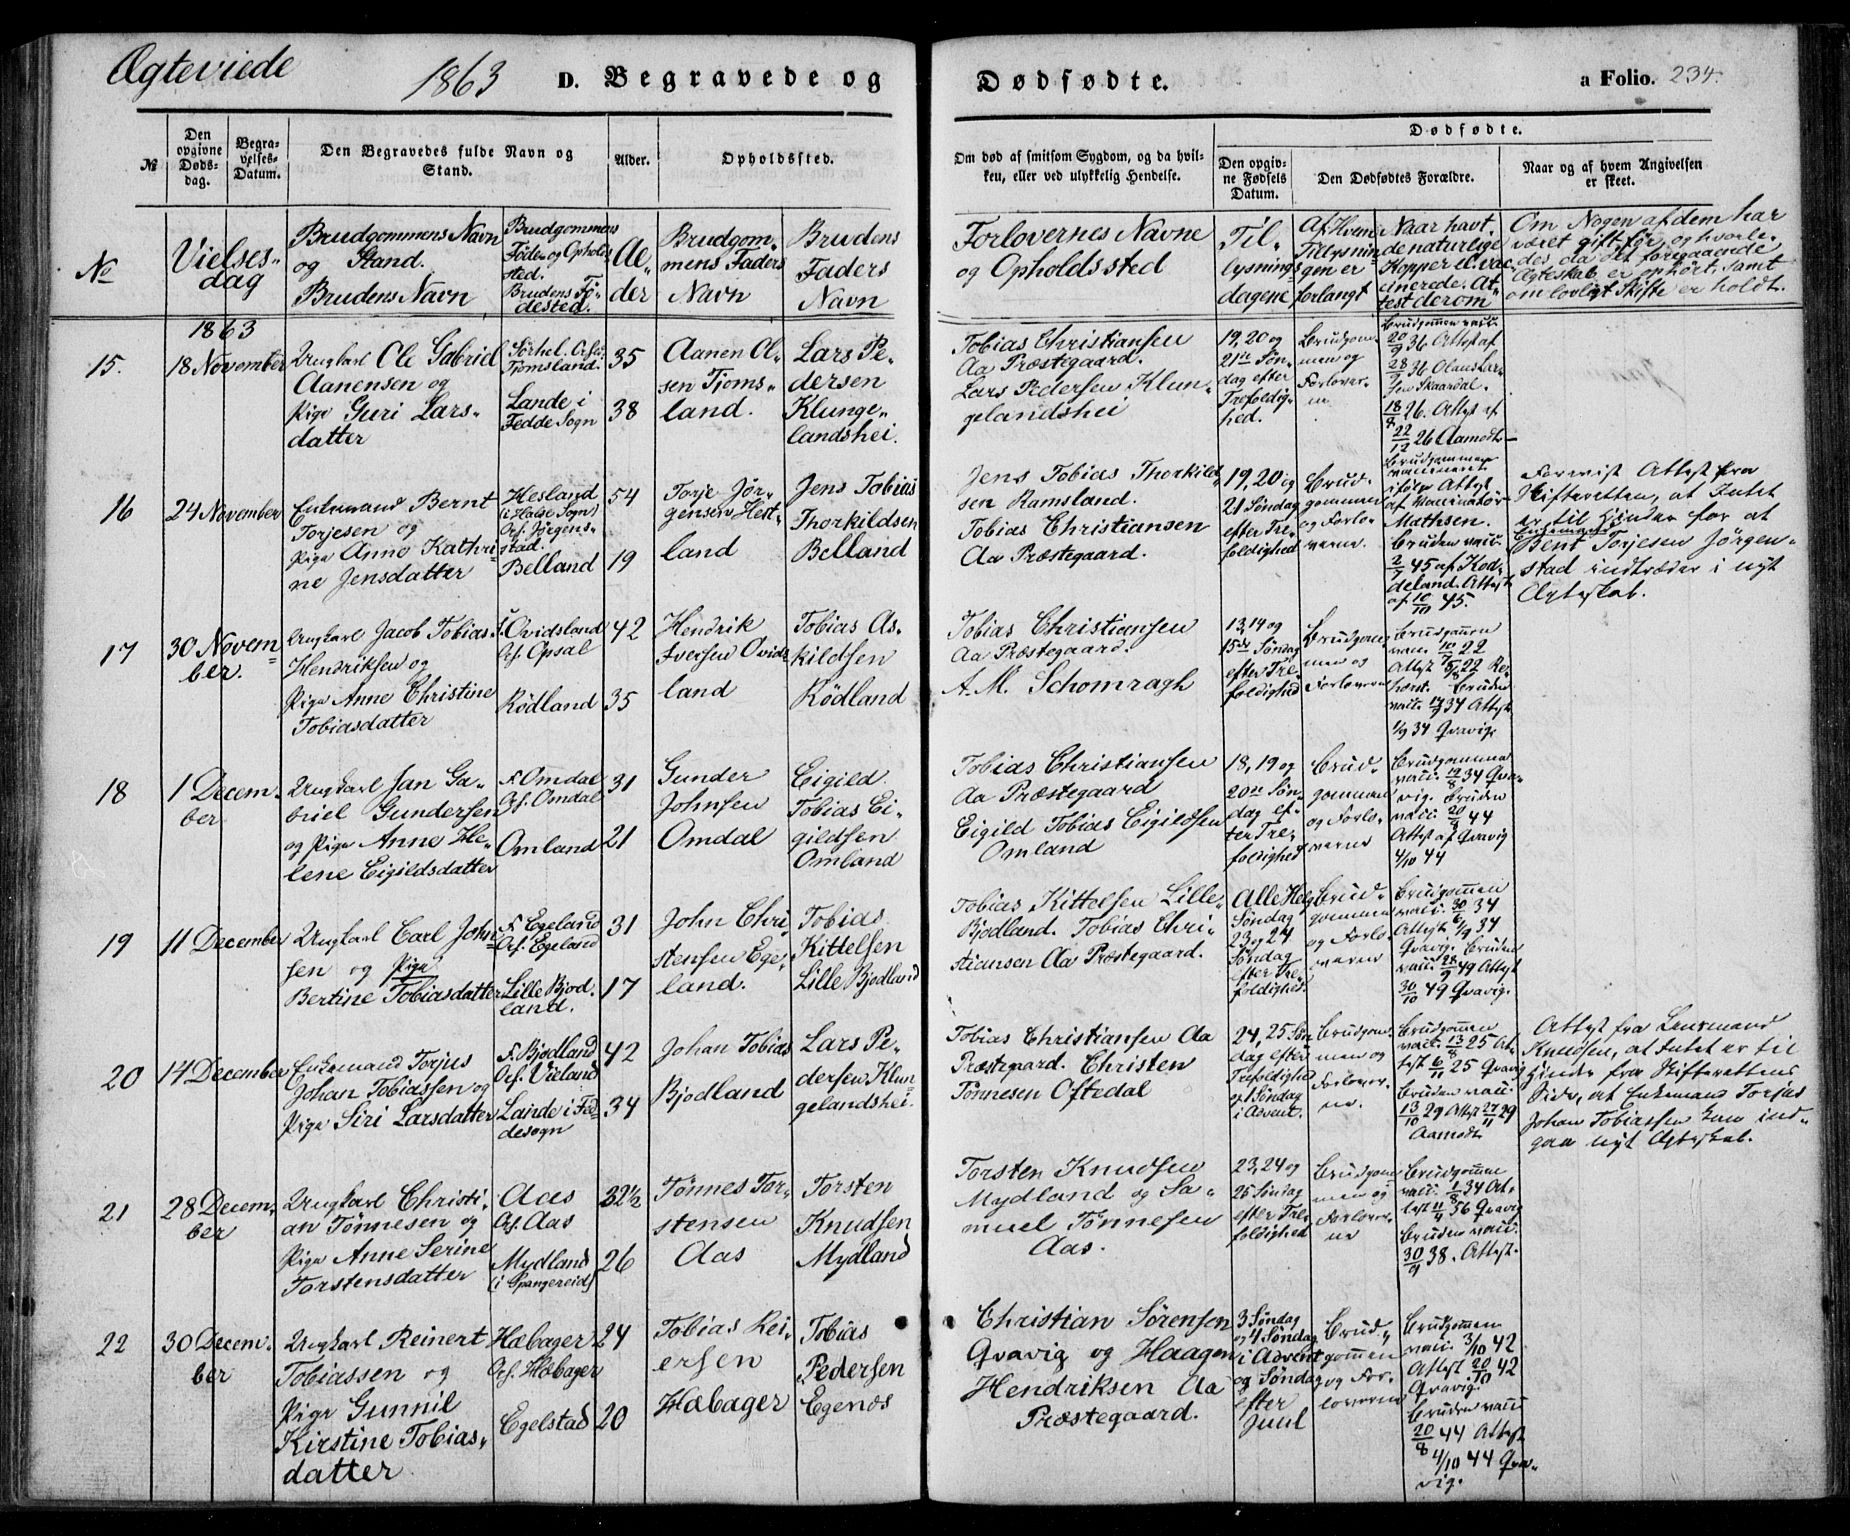 Ægteviede
1863
D. Begravede og Dødfødte.
a Folio. 234.
№
Den opgivne Dødsdag.
Begravelses-Datum.
Den Begravedes fulde Navn og Stand.
Alder.
Opholdssted.
Om død af smitsom Sygdom, og da hvilken, eller ved ulykkelig Hendelse.
Dødfødte.
Den opgivne Fødsels Datum.
Den Dødfødtes Forældre.
Naar og af hvem Angivelsen er skeet.
No
Vielsesdag
Brudgommens Navn
og Stand.
Brudens Navn
Brudgommens
Føde- og Opholdssted.
Brudens Fødested.
Alder
Brudgommens Faders
Navn
Brudens
Faders
Navn
Forlovernes Navne
og Opholdssted
Tillysningsdagene
Af Hvem
Tillysningen er
forlangt
Naar havt
de naturlige
Kopper el. vaccinerede. Attest derom
Om Nogen af dem har
været gift før, og hvorledes da det foregaaende
Ægteskab er ophørt, samt
om lovligt Skifte er holdt.
1863
15.
18 November
Ungkarl Ole Gabriel
Aanensen og
Pige Guri Larsdatter
Tjomsland.
Lande i
Fedde Sogn
35
38
Aanen Olsen Tjomsland.
Lars Pedersen
Klungelandshei.
Tobias Christiansen
Aa Præstegaard.
Lars Pedersen Klungelandshei
19, 20 og
21de Søndag efter
Trefoldighed.
Brudgommen og
Forloverne
Brudgommen vacc.
20/9 36 Attest af
28/9 36 Olaus Larsen Skaardal.
18/8 26. Attest af
22/12 26 Aamodt
16
24 November
Enkemand Bernt
Torjesen og
Pige Anne Kathrine Jensdatter
Hesland
(i Halse Sogn)
Of. Jørgenstad.
Belland
54
19
Torje Jørgensen Hestland
Jens Tobias
Thorkildsen
Belland
Jens Tobias Thorkildsen Ramsland.
Tobias Christiansen
Aa Præstegaard.
19, 20 og
21 Søndag
efter Trefoldighed
Brudgommen
og Forloverne.
Brudgommen
vaccineret
ifølge Attest
af Vaccinatør
Mathsen.
Bruden vacc.
2/7 45 af Koddeland. Attest
af 10/10 45.
Forevist Attest fra
Skifteretten, at Intet
er til Hinder for at
Enkemand
Bent Torjesen Jørgenstad indtræder i nyt
Ægteskab.
17
30 November.
Ungkarl Jacob Tobias
Hendriksen og
Pige Anne Christine
Tobiasdatter
F. Ovidsland
Of. Opsal
Rødland
42
35
Hendrik
Iversen Ovidsland
Tobias Askildsen
Rødland
Tobias Christiansen
Aa Præstegaard.
A. M. Schomragh
13, 14 og
15de Søndag
efter Trefoldighed
Brudgommen og
Forloveren
Brudgommen
vacc. 10/7 22
Attest 5/8 22
Bruden
vacc. 14/9 34 Attest
1/9 34 Qvavig.
18
1 December
Ungkarl Jan Gabriel Gundersen
og Pige Anne Helene Eigildsdatter
F. Omdal
Of. Omdal
Omland
31
21
Gunder
Johnsen
Omdal
Eigild
Tobias Eigildsen
Omland
Tobias Christiansen
Aa Præstegaard
Eigild Tobias Eigildsen
Omland
18, 19 og
20de Søndag efter Trefoldighed
Brudgommen
og Forloverne
Brudgommen
vacc. 19/8 34 Qvavig. Bruden
vacc. 20/9 44
Attest af Qvavig
4/10 44
19
11 December
Ungkarl Carl Johnsen og Pige
Bertine Tobiasdatter
F. Egeland
Of. Egeland
Lille Bjodland.
31
17
John Christensen Egeland.
Tobias
Kittelsen
Lille Bjodland
Tobias Kittelsen Lille-
Bjodland. Tobias Christiansen Aa Præstegaard.
Alle Helg.
Søndag
23 og 24
Søndag
efter Trefoldighed.
Brudgommen
og Forloveren
Brudgommen
vacc. 30/6 34
Attest 1/9 34
Qvavig. Bruden
vacc. 28/9 49 Attest
30/10 49 Qvavig.
20
14 December
Enkemand Torjus
Johan Tobiassen og
Pige Siri Larsdatter
F. Bjodland
Of. Vieland
Lande i Feddesogn
42
34
Johan Tobias
Bjodland
Lars Pedersen Klungelandshei.
Tobias Christiansen Aa
Præstegaard. Christen
Tønnesen Oftedal
24, 25 Søndag efter
Trefoldighed
og 1 Søndag
i Advent.
Brudgommen og
Forloverne.
Brudgommen
vacc. 13/8 25 Attest 6/11 25 Qvavig
Bruden vacc.
13/10 29 Attest 27/11 29
Aamodt
Attest fra Lensmand
Knudsen, at Intet er til
Hinder fra Skifterettens
Side, at Enkemand Torjus
Johan Tobiassen kan indgaa nyt Ægteskab.
21
28 December
Ungkarl Christian Tønnesen og
Pige Anne Serine
Torstensdatter
Aas
Of. Aas
Mydland
(i Spangereid)
32½
26
Tønnes Torstensen
Aas
Torsten
Knudsen
Mydland
Torsten Knudsen
Mydland og Samuel Tønnesen
Aas.
23, 24 og
25 Søndag
efter Trefoldighed
Brudgommen og
Forloverne
Brudgommen
vacc. 1/8 34 Attest 11/4 56 Qvavig
Bruden vacc.
30/9 38. Attest.
22
30 December
Ungkarl Reinert
Tobiassen og
Pige Gunnil
Kirstine Tobiasdatter
Hæbager
Of. Hæbager
Egelstad
24
20
Tobias Reiersen
Hæbager
Tobias
Pedersen
Egenæs
Christian Sørensen
Qvavig og Haagen
Hendriksen Aa
Præstegaard.
3 Søndag
og 4 Søndag
i Advent
og Søndag
efter
Juul
Brudgommen
og Forloverne
Brudgommen
vacc. 3/10 42
Attest 20/10 42
Qvavig.
Bruden vacc
20/8 44 Attest
4/10 44 Qvavig.